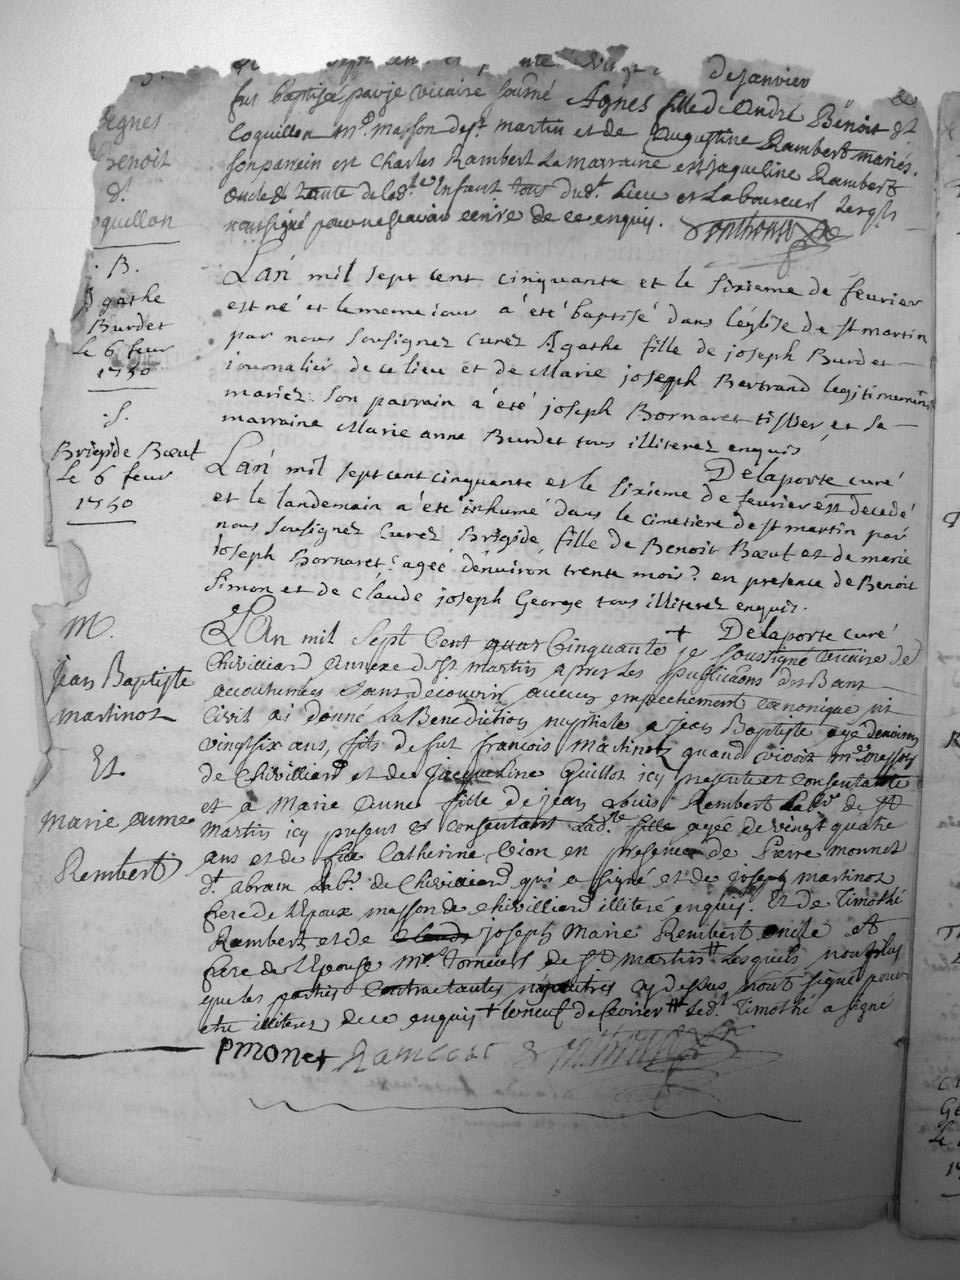 de Janvier
fut baptisé par je vicaire soussé Agnès fille d'André Benoit dt
Coquillon md masson de st martin et de Augustine Rambert mariés.
son parrein est Charles Rambert La marraine est jaqueline Rambert
oncle & tante de lad.te Enfant tous dudt Lieu et Laboureurs
nonsigné pour ne scavoir ecrire de ce enquis.
Agnes
Benoit
dt
Coquillon
B.
Agathe
Burdet
le 6 feur
1750
L'an mil sept cent cinquante et le sixieme de fevrier
est né et le meme iour a été baptisé dans l'églse de st martin
par nous soussignez curez Agathe fille de joseph Burdet
iournalier de ce lieu et de Marie joseph Bertrand legitimement
mariez. Son parrain a été joseph Bornaret tisser, et sa
marraine Marie anne Burdet tous illiterez enquis
Delaporte curé
S.
Brigide Bœut
le 6 feur
1750
L'an mil sept cent cinquante et le sixieme de fevrier est decedé
et le landemain a été inhumé dans le cimetiere de st martin par
nous soussignez curez Brigide, fille de Benoit Bœut et de marie
joseph Bornaret agée d'environ trente mois en presence de Benoit
Simon et de Claude joseph George tous illiterez enquis.
Delaporte curé
M.
Jean Baptiste
martinot
Et
marie aume
Rembert
L'An mil Sept Cent quar Cinquante + je soussigné vicaire de
Chivilliard Annexe de st martin apres Les publications des Bans
accoutumées sans decouvrir aucun empechement canonique ni
Civil ai donné La Benediction nuptiale a jean Baptiste agé denviron
vingtsix ans, fils de fut françois Martinot quand vivoit md masson
de Chivilliard et de Jacqueline Guillot icy presente et consentante
et a Marie Aume fille de jean Rembert Labr de st
Martin icy present & consentant Lad.te fille agée de vingt quatre
ans et de Catherine Vion en presence de Pierre monnet
dt abram Labr de Chivilliard qui a signé et de joseph martinot
frere de l'Epoux masson de Chivilliard illiteré enquis. Et de Timothé
Rambert et de joseph Marie Rembert oncle et
frere de l'Epouse de st martin Lesquels non plus
que les parties Contractantes cy dessus n'ont signé pour
etre illiterez de ce enquis + le neuf de fevrier Ledt Timothé a signé
P monet Rambert